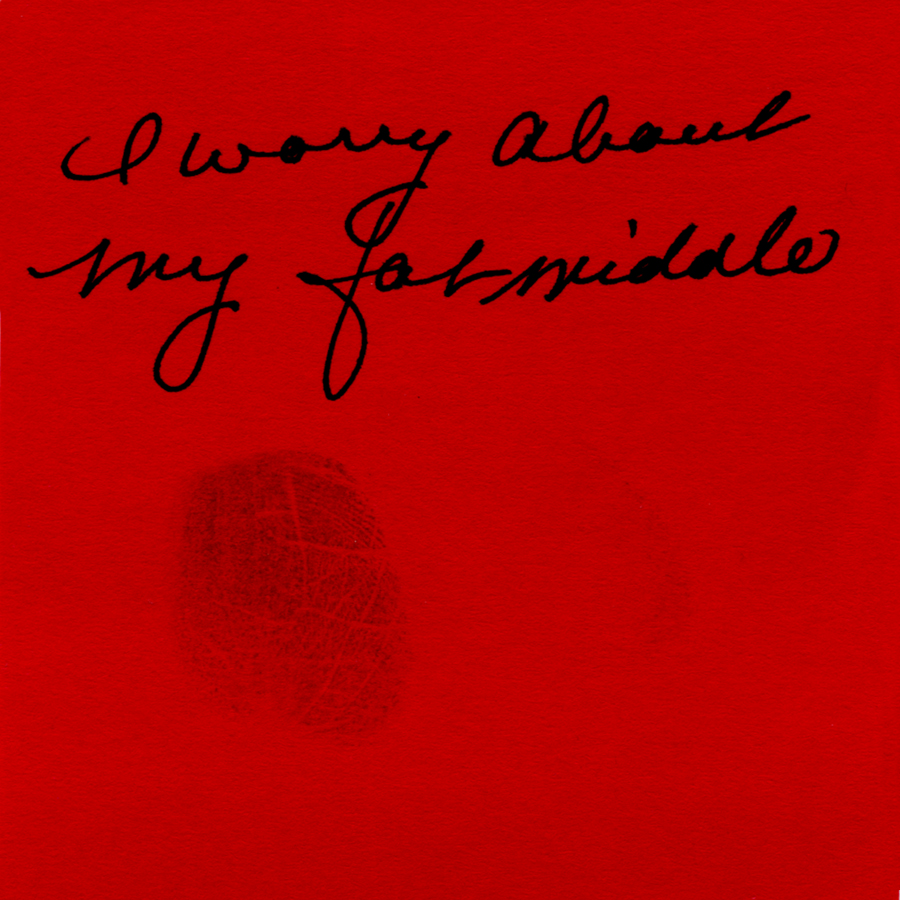 I worry about
my fat middle